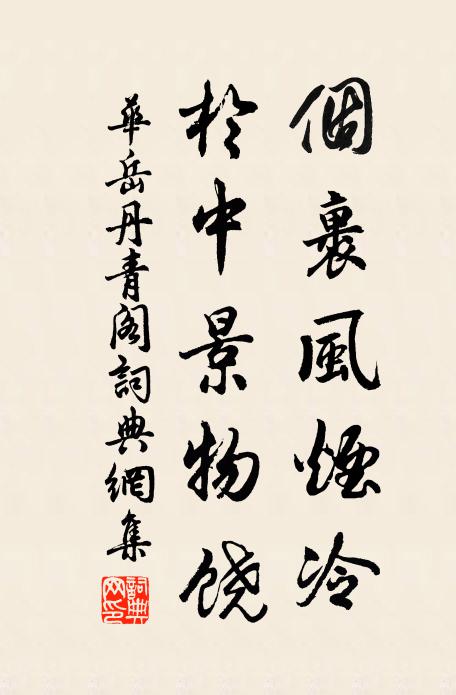 個裏風煙冷
於中景物饶
華岳丹青阁詞典網集
詞典網印